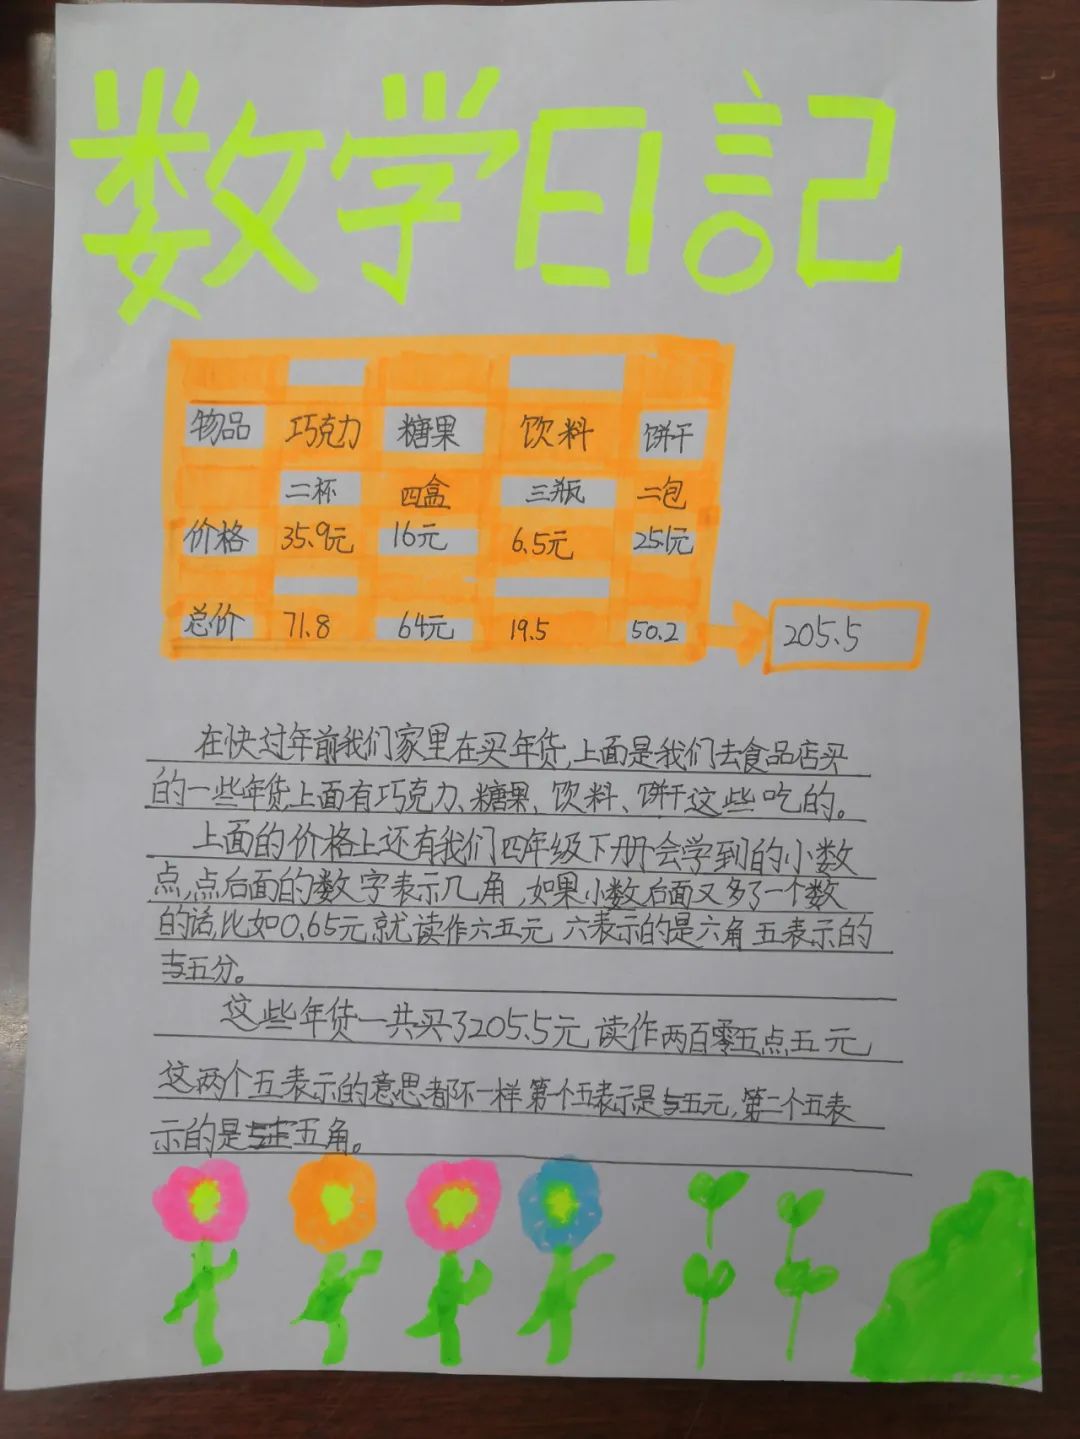 数学日記
物品 巧克力 糖果 饮料 饼干
二杯 四盒 三瓶 二包
价格 35.9元 16元 6.5元 25.1元
总价 71.8 64元 19.5 50.2
205.5
在快过年前我们家里在买年货,上面是我们去食品店买
的一些年货上面有巧克力、糖果、饮料、饼干这些吃的。
上面的价格上还有我们四年级下册会学到的小数
点,点后面的数字表示几角,如果小数后面又多了一个数
的话,比如0.65元,就读作六五元 六表示的是六角 五表示的
五分。
这些年货一共买了205.5元,读作两百零五点五元,
这两个五表示的意思都不一样 第个五表示是五元,第二个五表
示的是五角。